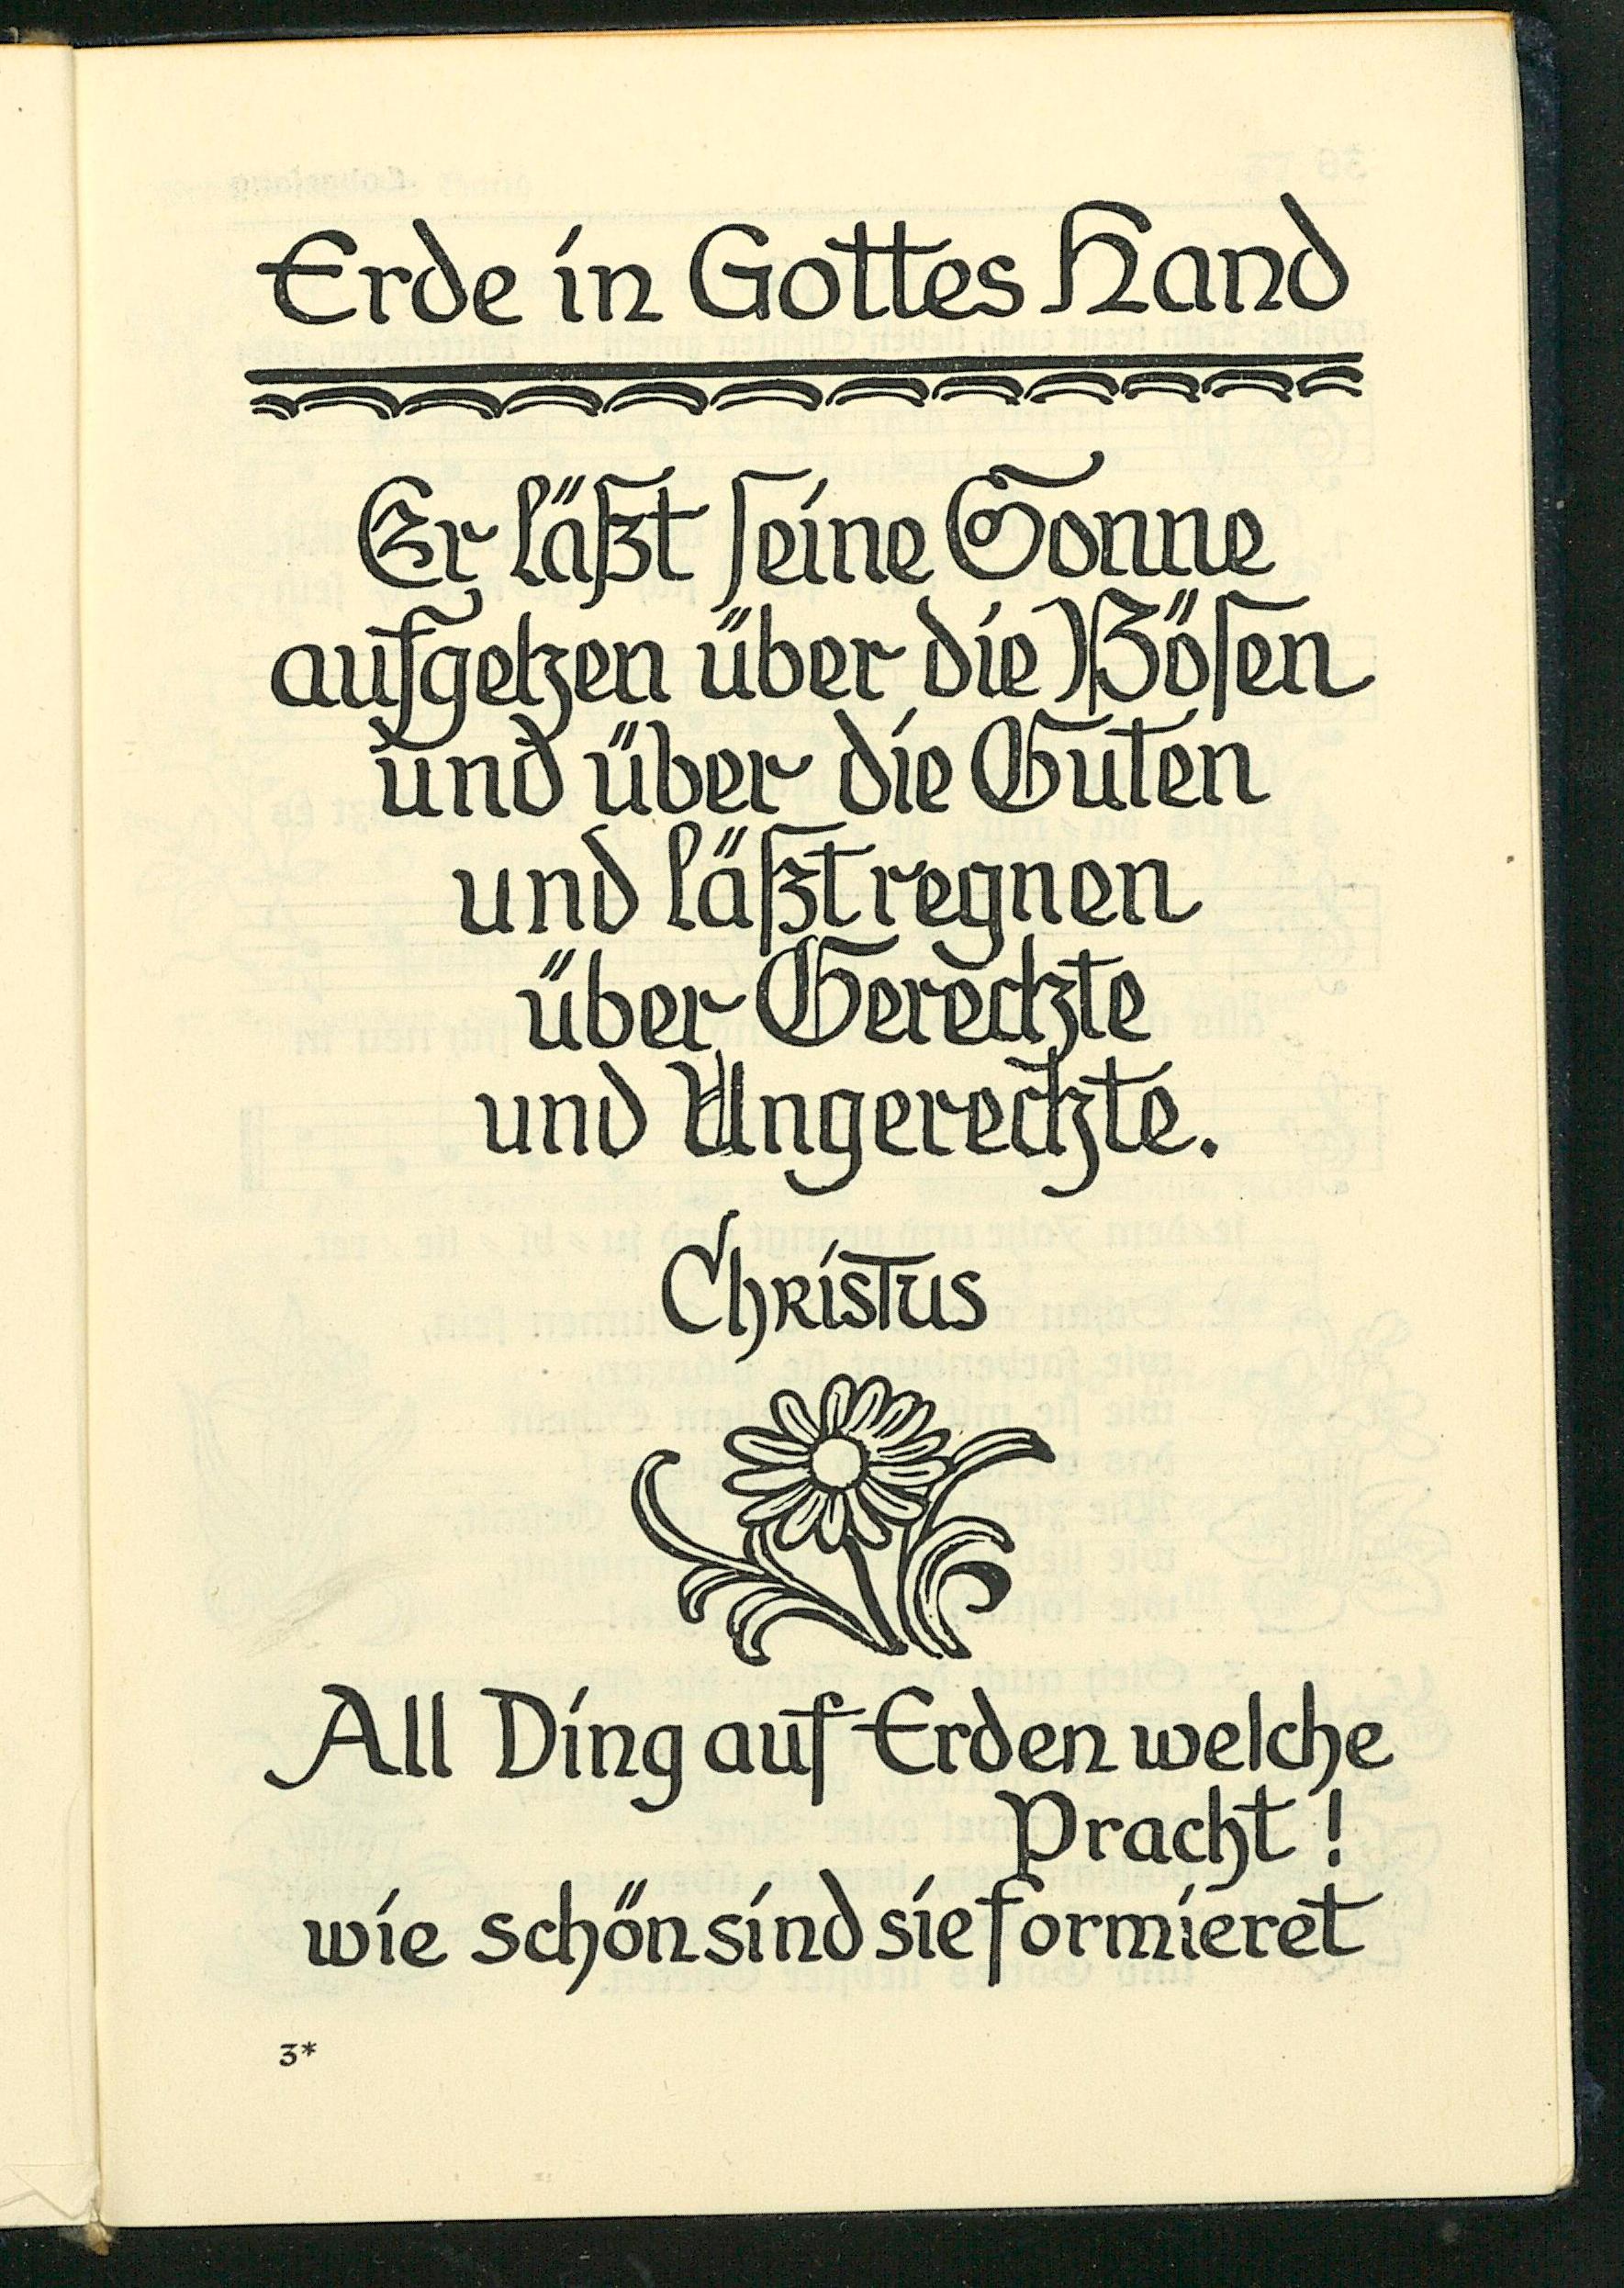 Erde in Gottes Hand
Er läßt seine Sonne
aufgehen über die Bösen
und über die Guten
und läßt regnen
über Gerechte
und Ungerechte.
Christus
All Ding auf Erden welche
Pracht!
wie schön sind sie formieret
3*